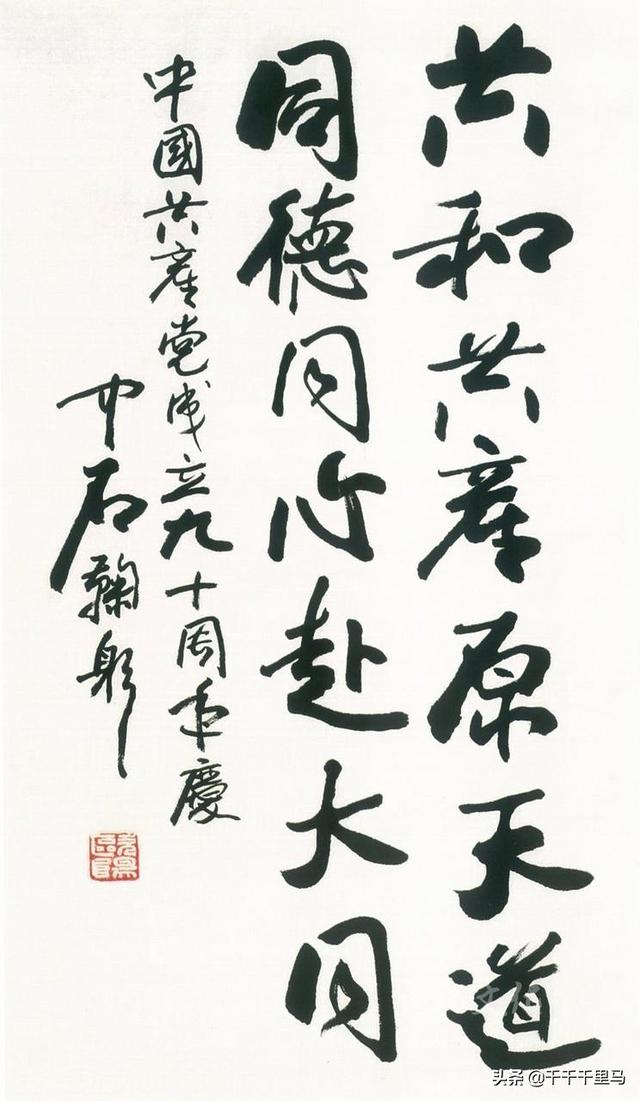 共和共產原天道
同德同心赴大同
中國共產党成立九十周年慶
中石鞠躬
头条 @千千千里马